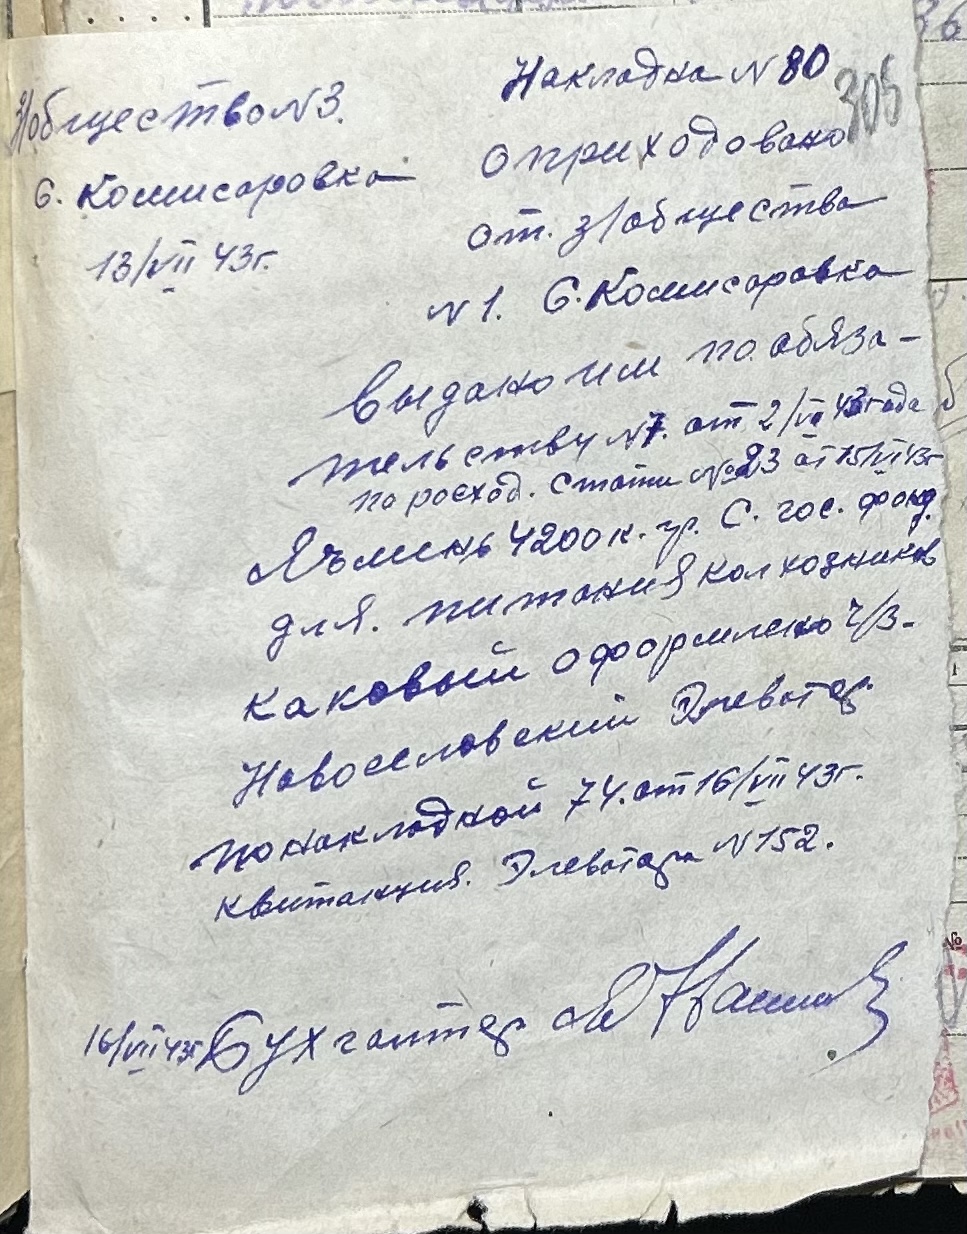 З/общество N 3.
с. Комисаровка
13/VII 43г.
Накладна N 80
305
Оприходовано
от. з/общества
N 1. С. Комисаровка
выдано им по обяза-
тельству N 7. от 2/VII 43 года
по росход. Стати № 23 от 15/VI 43г
Ячмень 4200 к. гр. С. гос. фонд.
для. питания колхозников
каковый оформлено ч/з-
Новоселовский Элеватор
по накладной 74. от 16/VII 43г.
квитанция. Элеватора N 152.
16/VII 43г Бухгалтер